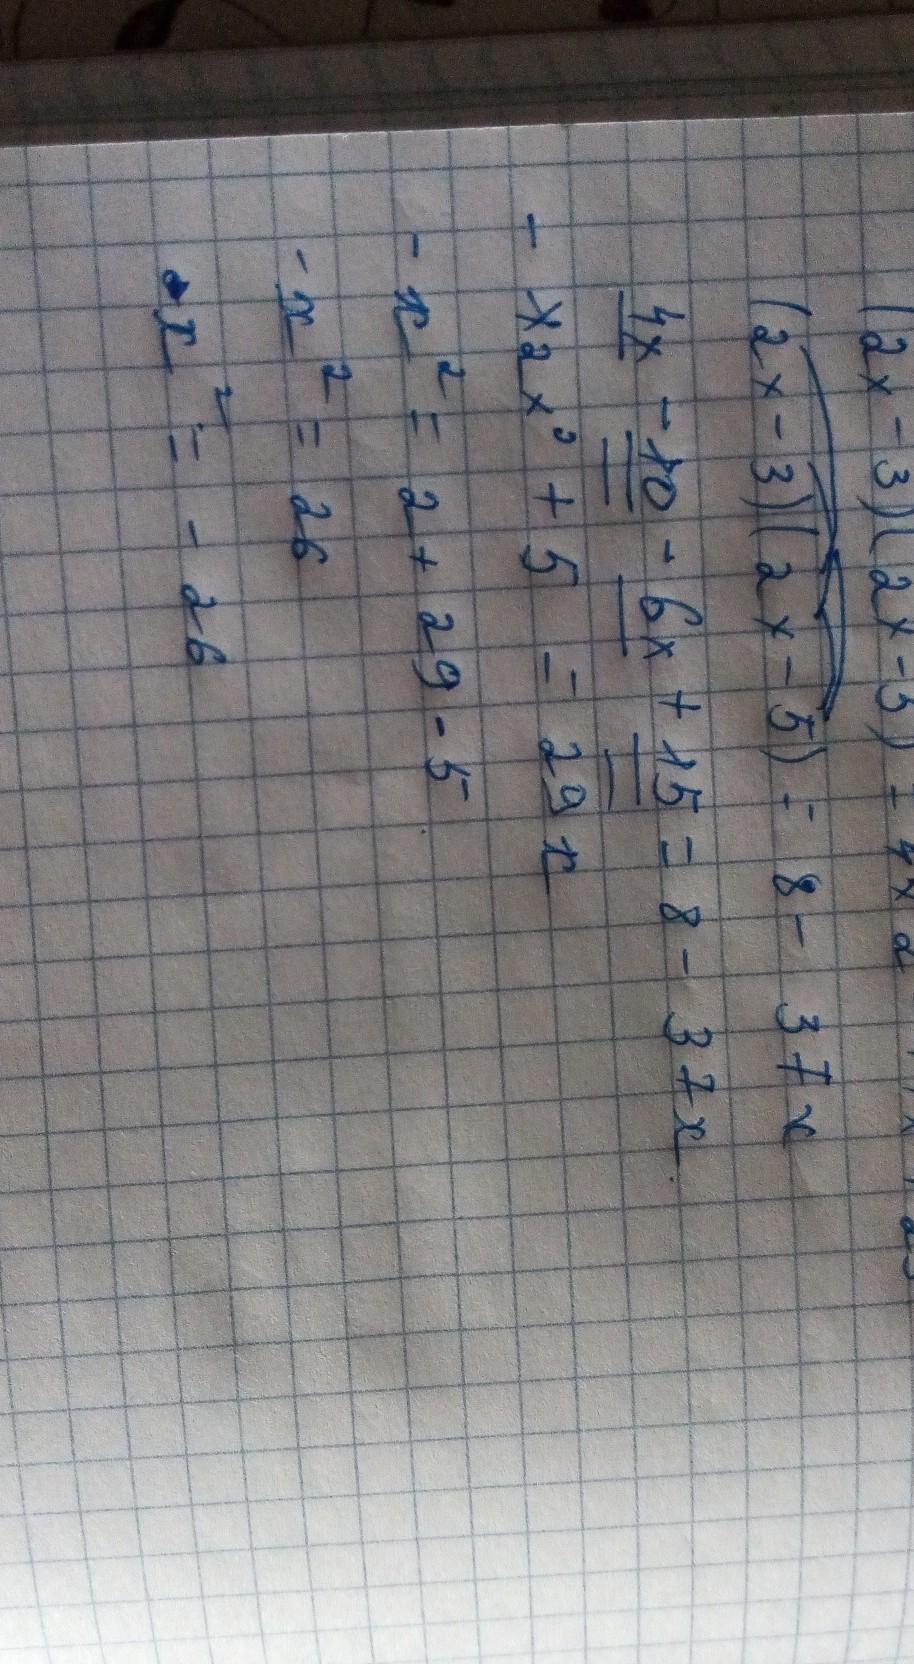 (2x - 3)(2x - 5) = 4x
(2x - 3)(2x - 5) = 8 - 37x
4x - 10 - 6x + 15 = 8 - 37x
- x2x² + 5 = 29x
- x² = 2 + 29 - 5
- x² = 26
x² = - 26